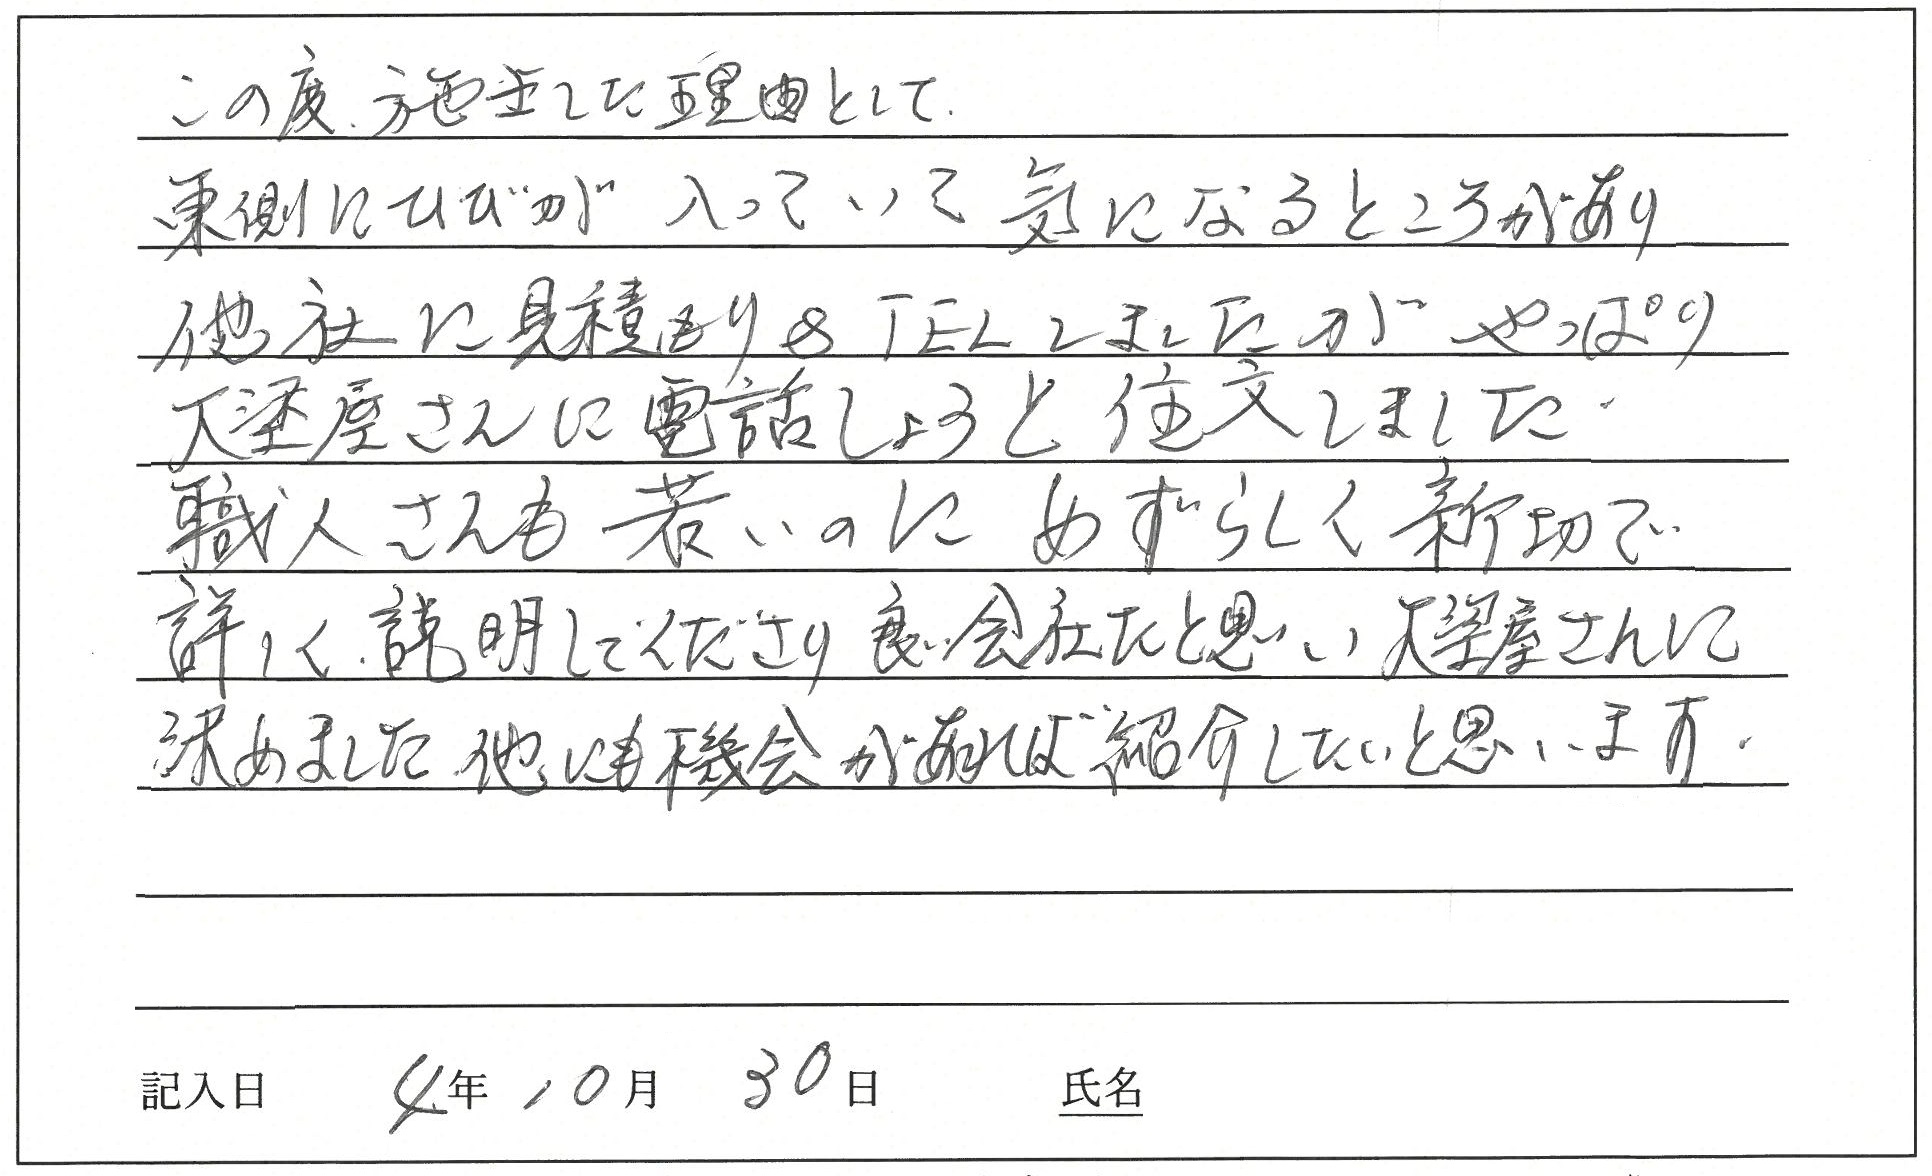 この度、施工した理由として、
東側にひびが入っていて気になるところがあり
他社に見積もり&TELしましたがやっぱり
大塗屋さんに電話しようと注文しました。
職人さんも若いのにめずらしく親切で
詳しく説明してくださり良い会社だと思い大塗屋さんに
決めました他にも機会があれば紹介したいと思います。
記入日 4年10月30日 氏名